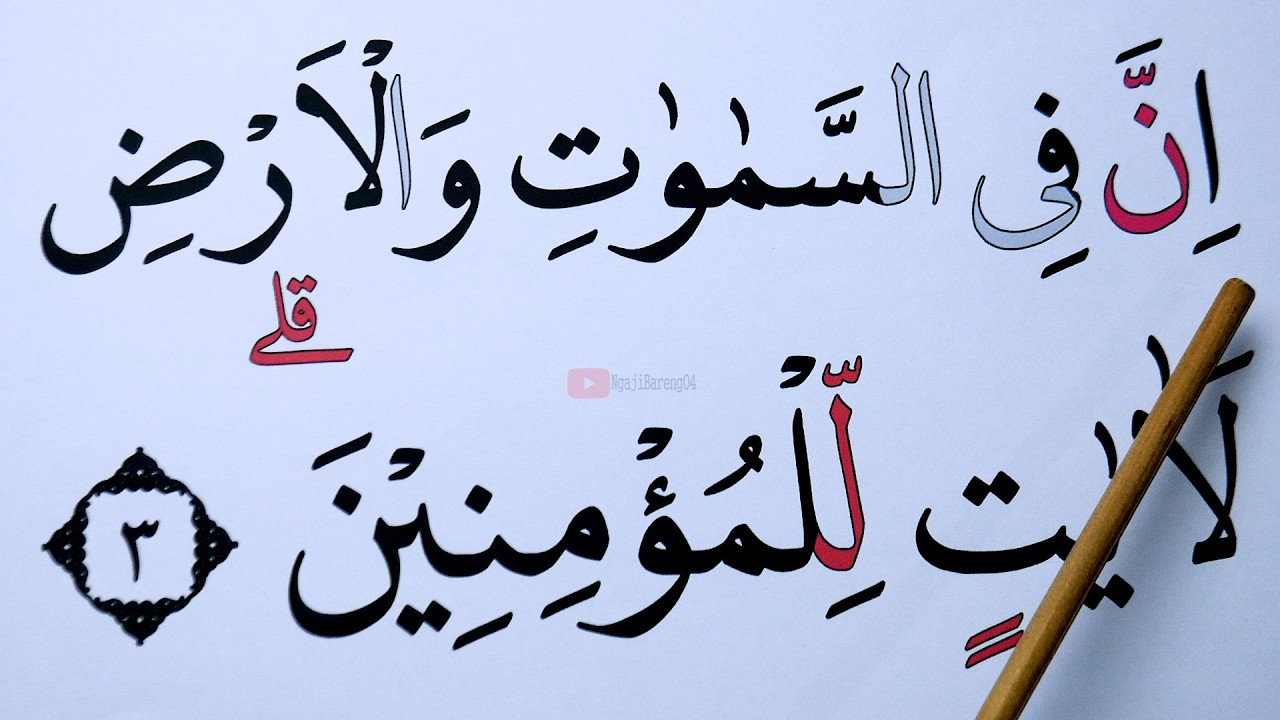 اِنَّ فِى السَّمٰوٰتِ وَالْاَرْضِ
قلے
NgajiBareng04
لَاٰيٰتٍ لِّلْمُؤْمِنِيْنَ ٣